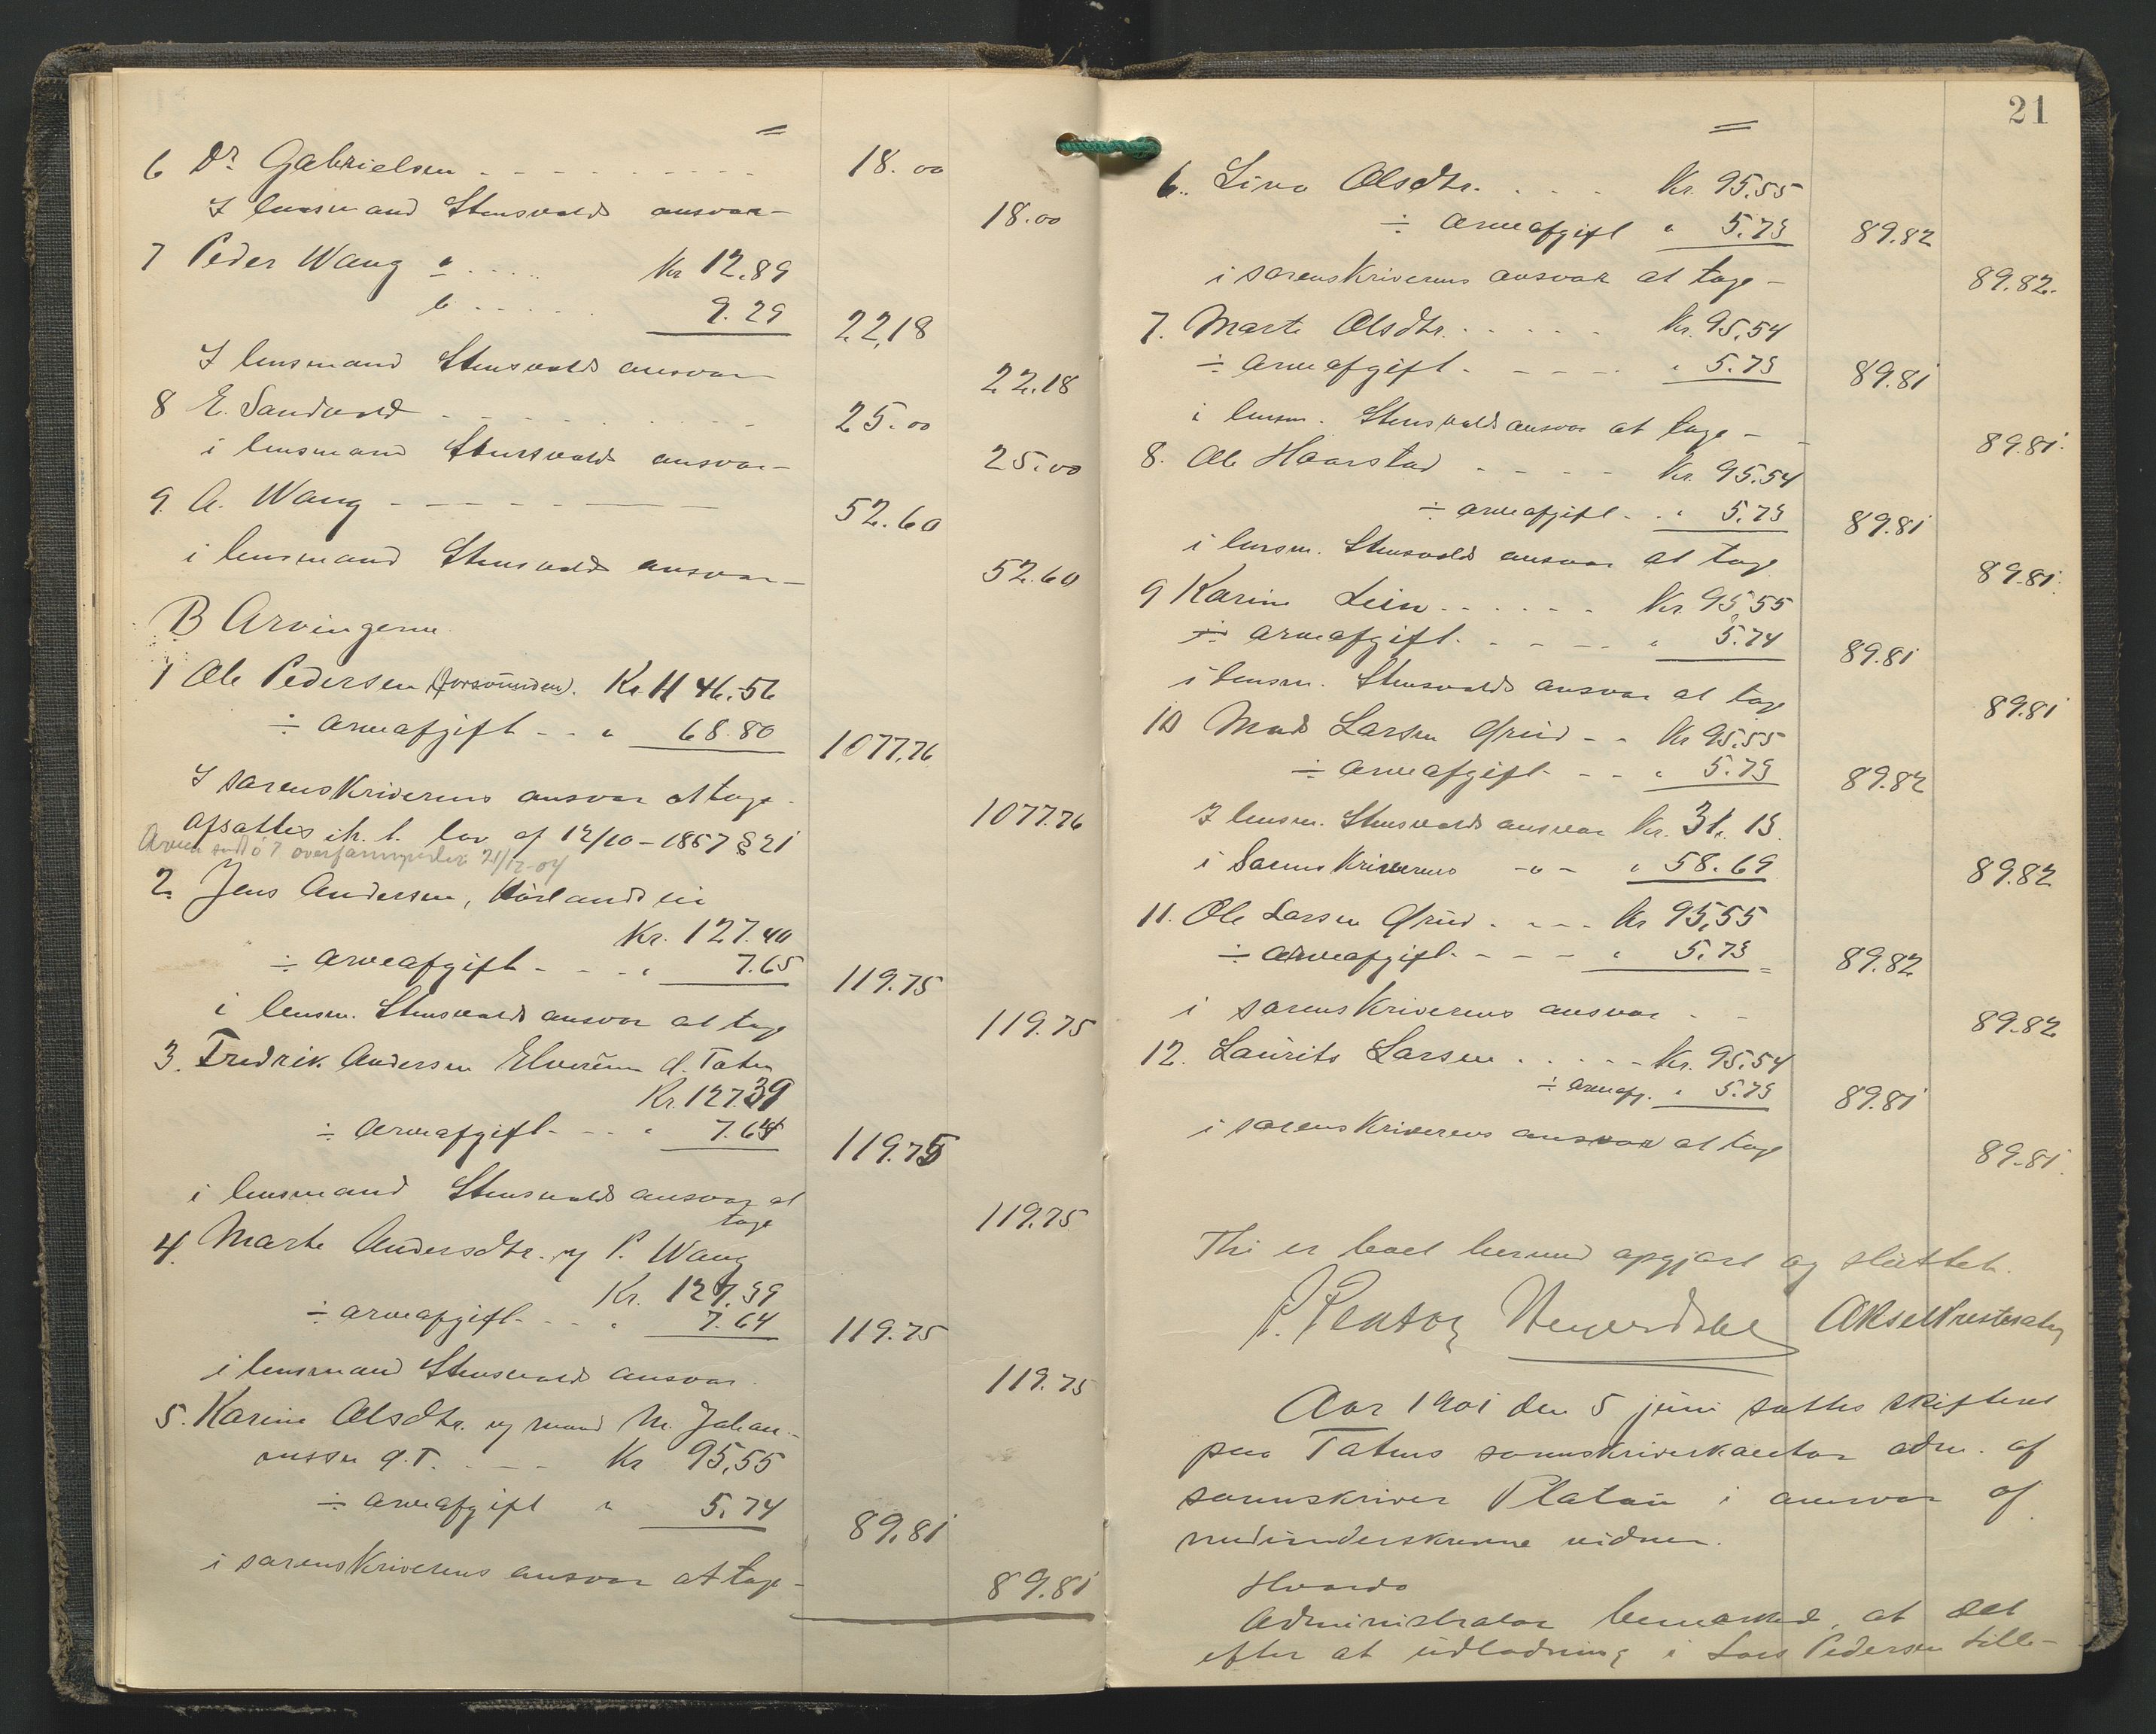 6 Dr. Gabrielsen 18.00
I lensmand Stensvolds ansvar – 18.00
7 Peder Wang a Kr 12.89
b 9.29 22.18
I lensmand Stensvolds ansvar 22.18
8 E. Sandvold 25.00
i lensmand Stensvolds ansvar – 25.00
9. A. Wang 52.60
i lensmand Stensvolds ansvar – 52.60
B Arvingerne
1 Ole Pedersen (forsvunden). Kr. 1146.56
÷ arveafgift - - " 68.80 1077.76
I sorenskriverens ansvar at tage - 1077.76
afsættes ih. t. lov af 12/10 – 1857 § 21
Arven overformynderi 21/12-04
2. Jens Andersen,
Kr. 127.40
÷ arveafgift - - - " 7.65 119.75
i lensm. Stensvolds ansvar at tage 119.75
3. Fredrik Andersen Elverum d. Toten
Kr. 127.39
÷ arveafgift - - - " 7.64 119.75
i lensmand Stensvolds ansvar at
tage 119.75
4. Marte Andersdtr. v/ P. Wang
Kr. 127.39
÷ arveafgift - - - " 7.64 119.75
i lensmand Stensvolds ansvar 119.75
5. Karine Olsdtr. v/ mand M. Johan-
nessen Ø.T. - - - Kr 95.55
÷ arveafgift " 5.74 89.81
i sorenskriverens ansvar at tage - 89.81
21
6. Lina Olsdtr. Kr. 95.55
÷ arveafgift " 5.73 89.82
i sorenskriverens ansvar at tage – 89.82.
7. Marte Olsdtr. Kr. 95.54
÷ arveafgift - - - - " 5.73 89.81
i lensm. Stensvolds ansvar at tage - - 89.81.
8. Ole Haarstad - - - - Kr. 95.54
÷ arveafgift - . " 5.73 89.81
i lensm. Stensvolds ansvar at tage 89.81.
9 Karine Lein Kr. 95.55
÷ arveafgift - - - - " 5.74 89.81
i lensm. Stensvolds ansvar at tage 89.81
10 Mads Larsen - - Kr 95.55
÷ arveafgift - - - " 5.73 89.82
I lensm. Stensvolds ansvar Kr. 31.13
i Sorenskriverens -"- " 58.69 89.82
11. Ole Larsen - - - Kr 95,55
÷ arveafgift - - - - " 5.73 89.82
i sorenskriverens ansvar - - 89.82
12. Laurits Larsen - - - Kr. 95.54
÷ arveafg. " 5.73 89.81
i sorenskriverens ansvar at tage 89.81.
Thi er boet herved opgjort og sluttet.
Aar 1901 den 5 juni sattes skifteret
paa Totens sorenskriverkontor adm. af
sorenskriver Platou i nærvær af
medunderskrevne vidner.
Hvorda
Administrator bemærked, at det
efter at udlodning i Lars Pedersen tille-